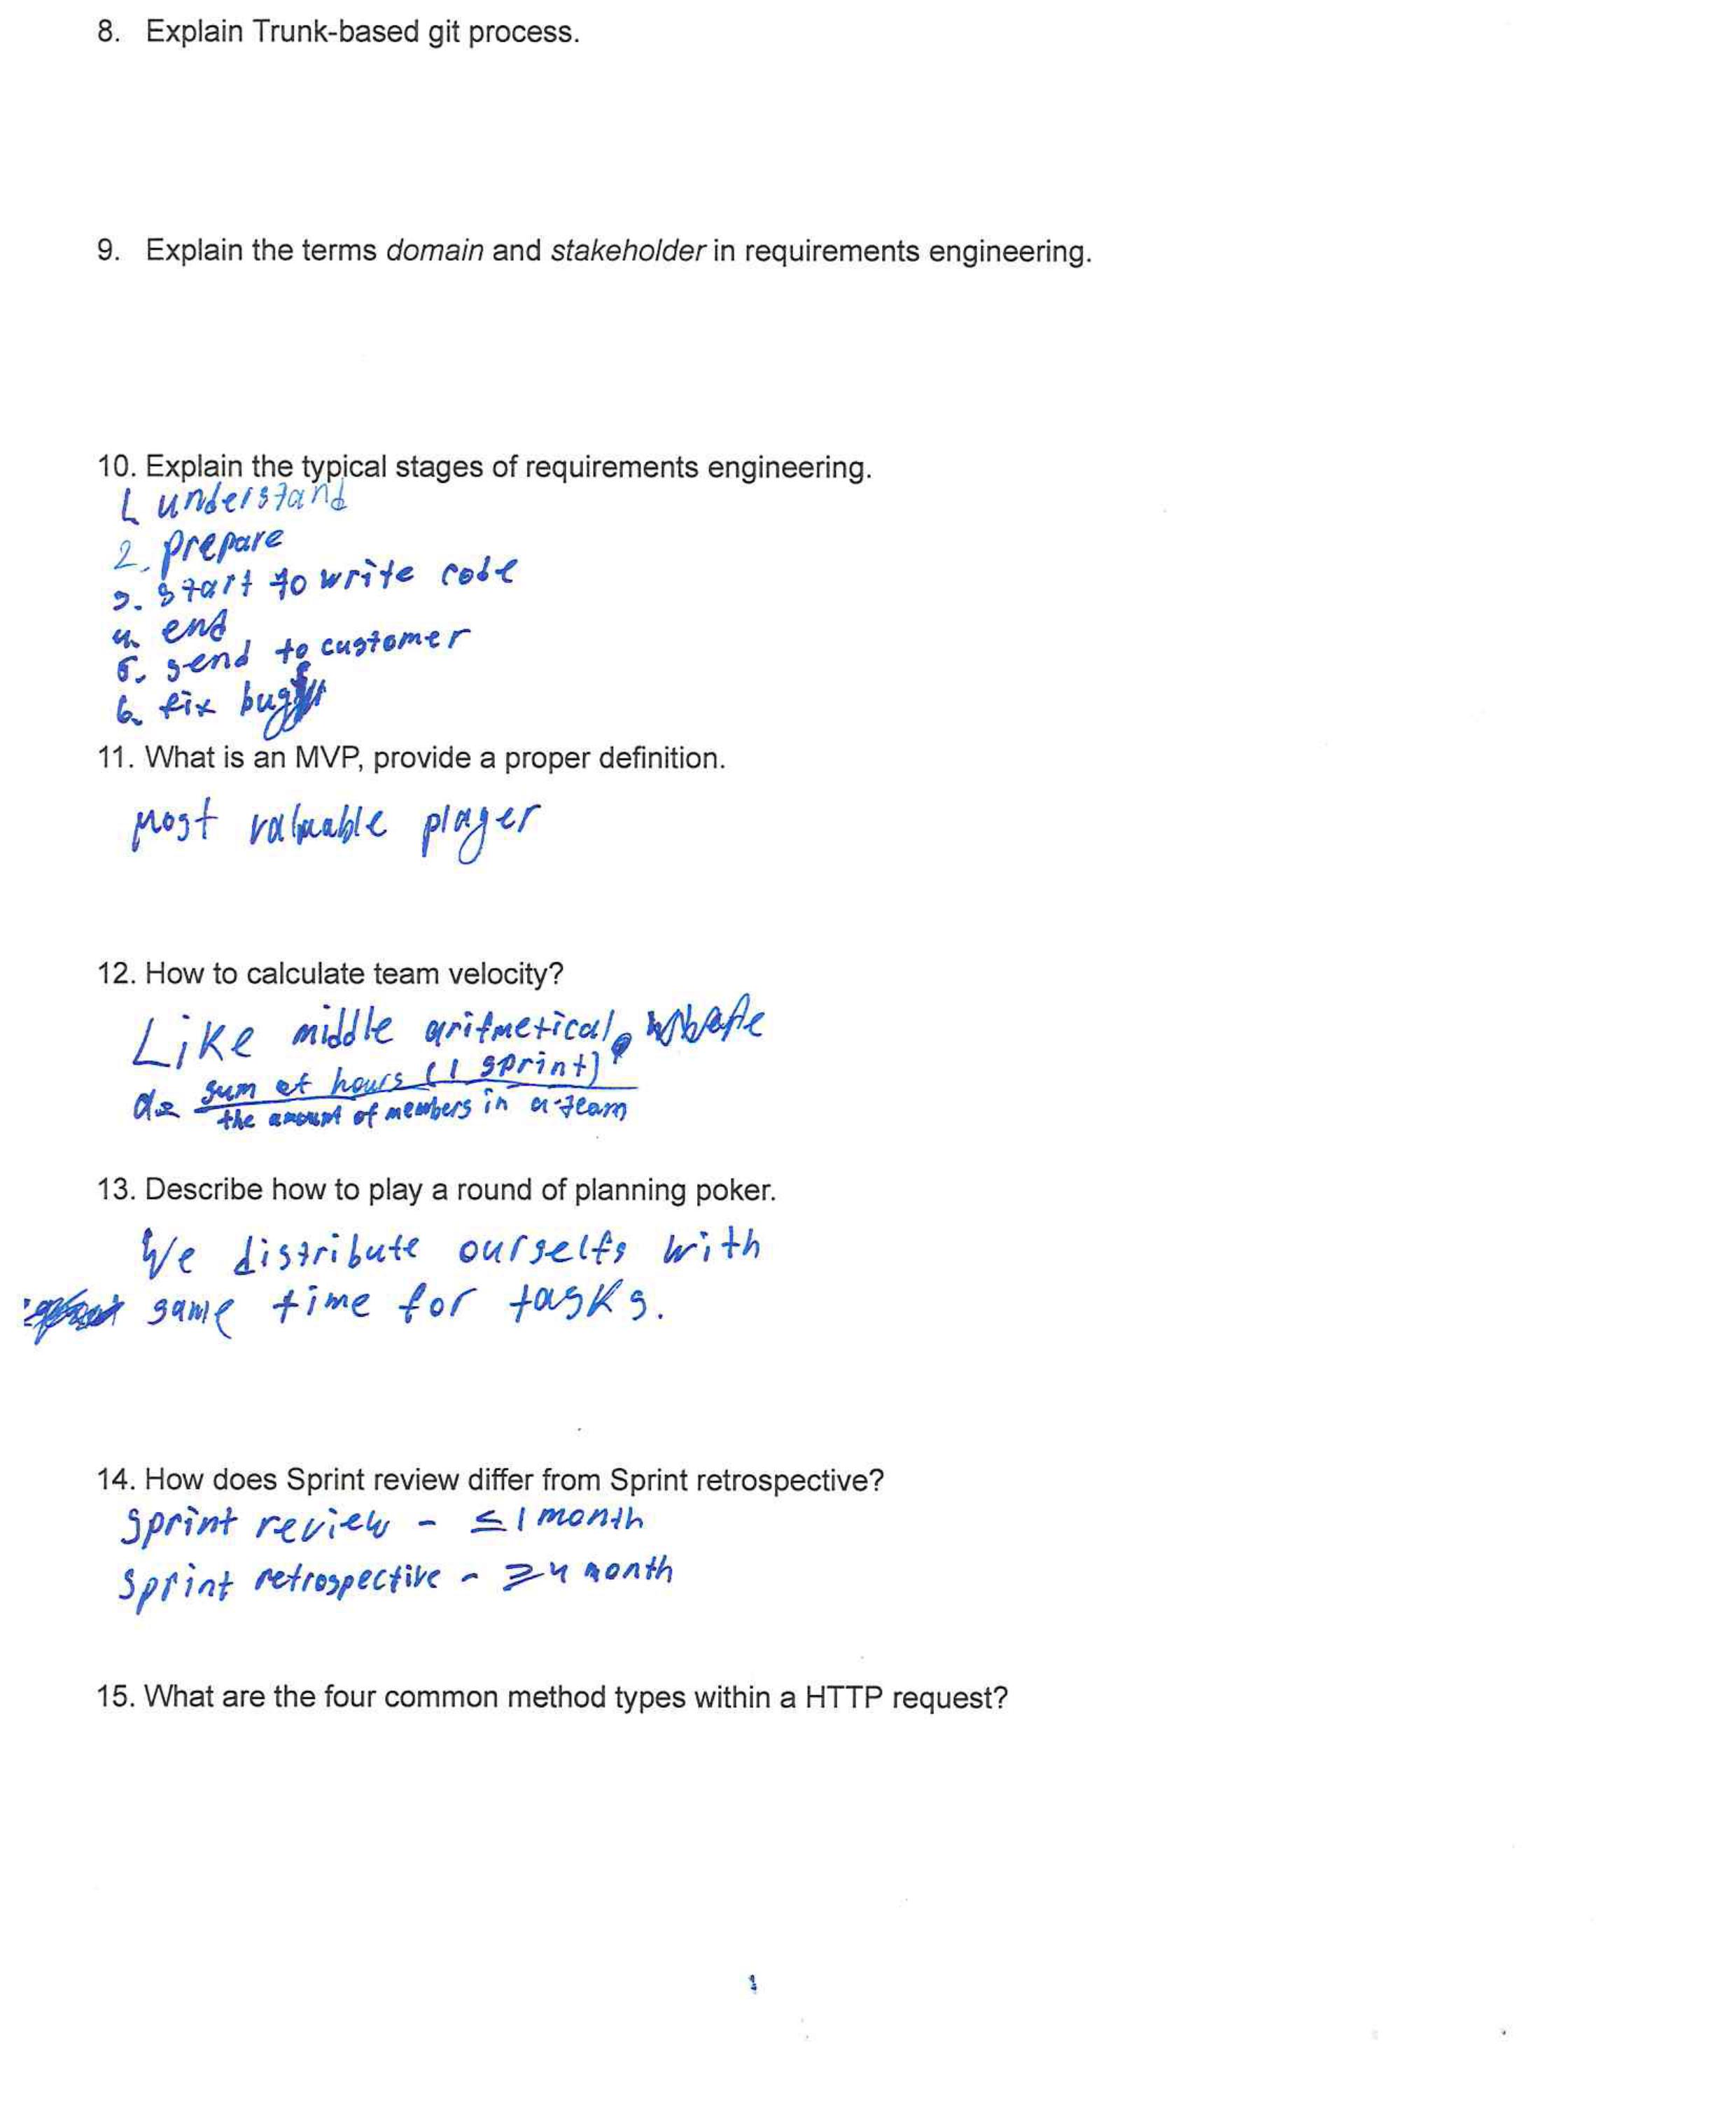 8. Explain Trunk-based git process.
9. Explain the terms domain and stakeholder in requirements engineering.
10. Explain the typical stages of requirements engineering.
1. understand
2. prepare
3. start to write code
4. end
5. send to customer
6. fix bugs
11. What is an MVP, provide a proper definition.
Most valuable player
12. How to calculate team velocity?
Like middle aritmetical,
d= sum of hours (1 sprint)
the amount of members in a team
13. Describe how to play a round of planning poker.
We distribute ourselfs with
same time for tasks.
14. How does Sprint review differ from Sprint retrospective?
Sprint review - ≤ 1 month
Sprint retrospective - ≥ 4 month
15. What are the four common method types within a HTTP request?